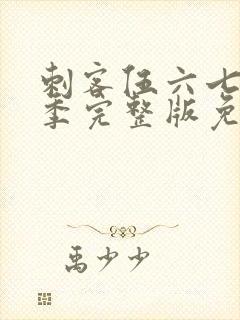 刺客伍六七
季完整版免
禹少少